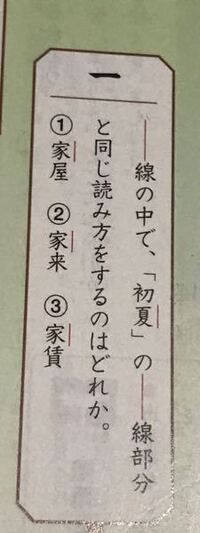 一
――線の中で、「初夏」の――線部分
と同じ読み方をするのはどれか。
①家屋 ②家来 ③家賃